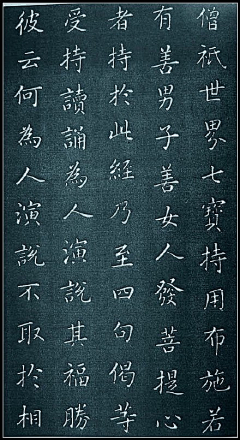 僧祇世界七寶持用布施若
有善男子善女人發菩提心
者持於此經乃至四句偈等
受持讀誦為人演說其福勝
彼云何為人演說不取於相